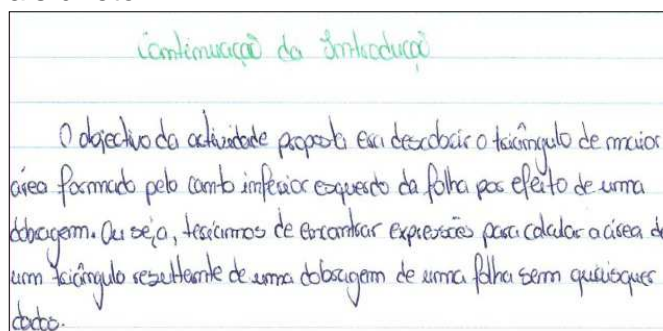 Continuação da Introdução
O objectivo da actividade proposta era descobrir o triângulo de maior
área formado pelo canto inferior esquerdo da folha por efeito de uma
dobragem. Ou seja, teríamos de encontrar expressões para calcular a área de
um triângulo resultante de uma dobragem de uma folha sem quaisquer
dados.